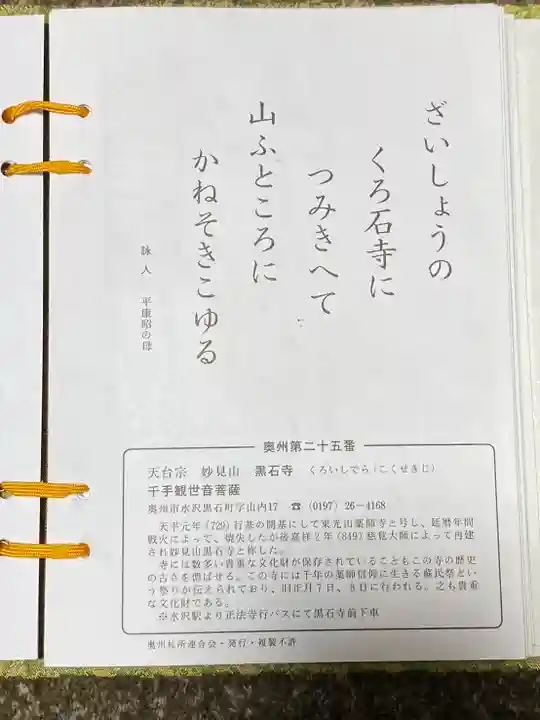 ざいしょうの
くろ石寺に
つみきへて
山ふところに
かねそきこゆる
詠人 平康昭の母
奥州第二十五番
天台宗 妙見山 黒石寺 くろいしでら(こくせきじ)
千手観世音菩薩
奥州市水沢黒石町字山内17 ☎(0197)26-4168
天平元年(729)行基の開基にして東光山薬師寺と号し、延暦年間
戦火によって、焼失したが後嘉祥2年(849)慈覚大師によって再建
され妙見山黒石寺と称した。
寺には数多い貴重な文化財が保存されていることもこの寺の歴史
の古さを偲ばせる。この寺には千年の薬師信仰に生きる蘇民祭とい
う祭りが伝えられており、旧正月7日、8日に行われる。之も貴重
な文化財である。
※水沢駅より正法寺行バスにて黒石寺前下車
奥州札所連合会・発行・複製不許